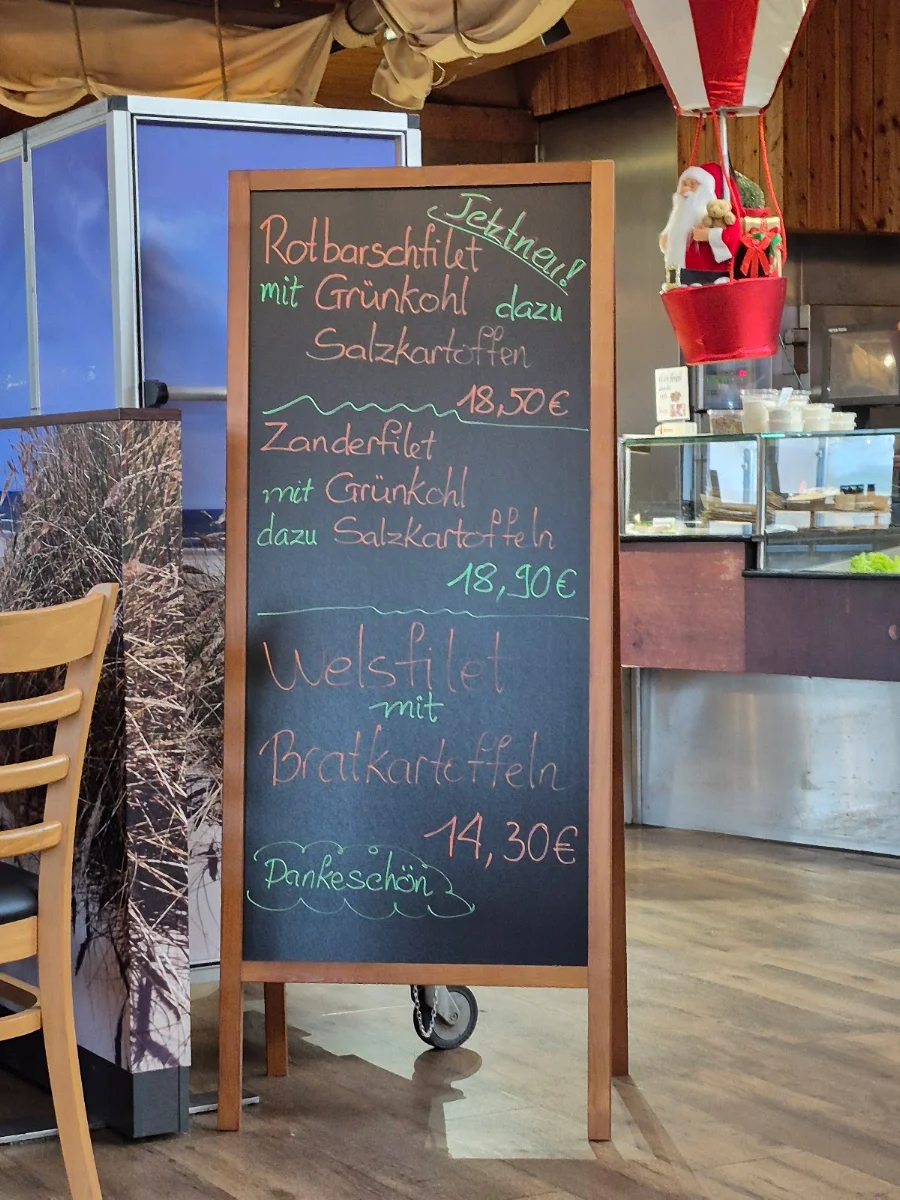 Jetzt neu!
Rotbarschfilet
mit Grünkohl dazu
Salzkartoffen
18,50€
Zanderfilet
mit Grünkohl
dazu Salzkartoffeln
18,90€
Welsfilet
mit
Bratkartoffeln
14,30€
Dankeschön